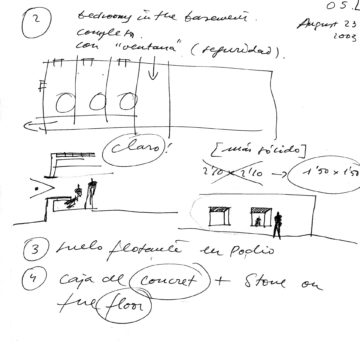 OSL
August 23
2003
2 bedrooms in the basement.
completa
con "ventana" (seguridad).
claro!
[más sólido]
2'10 x 2'10 → 1'50 x 1'50
3 suelo flotante en podio
4 caja del concret + stone on
the floor